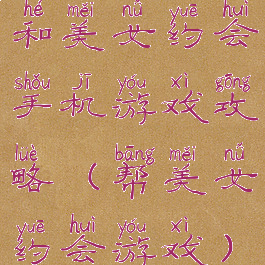 hé měi nǚ yuē huì
和美女约会
shǒu jī yóu xì gōng
手机游戏攻
lüè bāng měi nǚ
略（帮美女
yuē huì yóu xì
约会游戏）